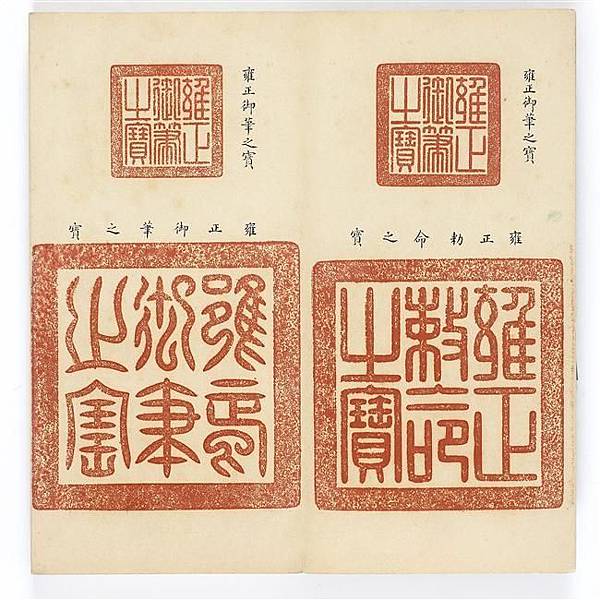 雍正御筆之寶
雍正
御筆
之寶
雍正勅命之寶
雍正
敕命
之寶
雍正御筆之寶
雍正
御筆
之寶
雍正御筆之寶
雍正
御筆
之寶